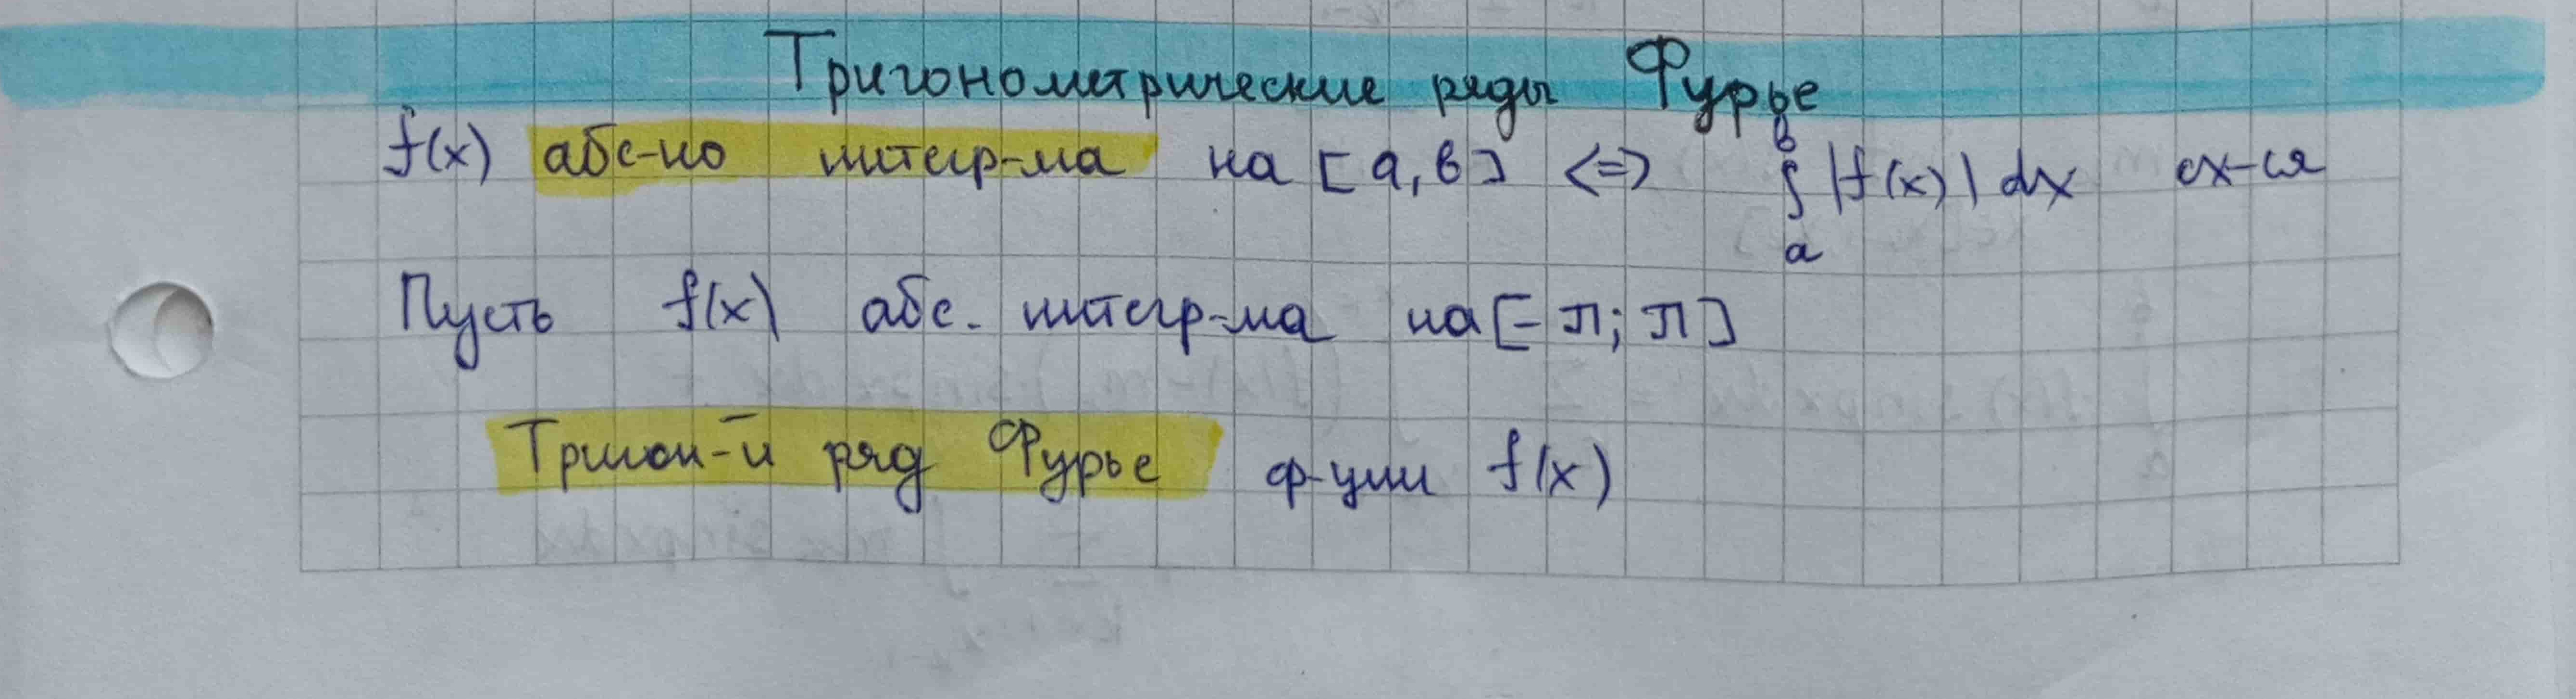 Тригонометрические ряды Фурье
f(x) абс-но интегр-ма на [a, b] <=> ∫_a^b |f(x)| dx сх-ся
Пусть f(x) абс. интегр-ма на [-π; π]
Тригон-й ряд Фурье ф-ции f(x)